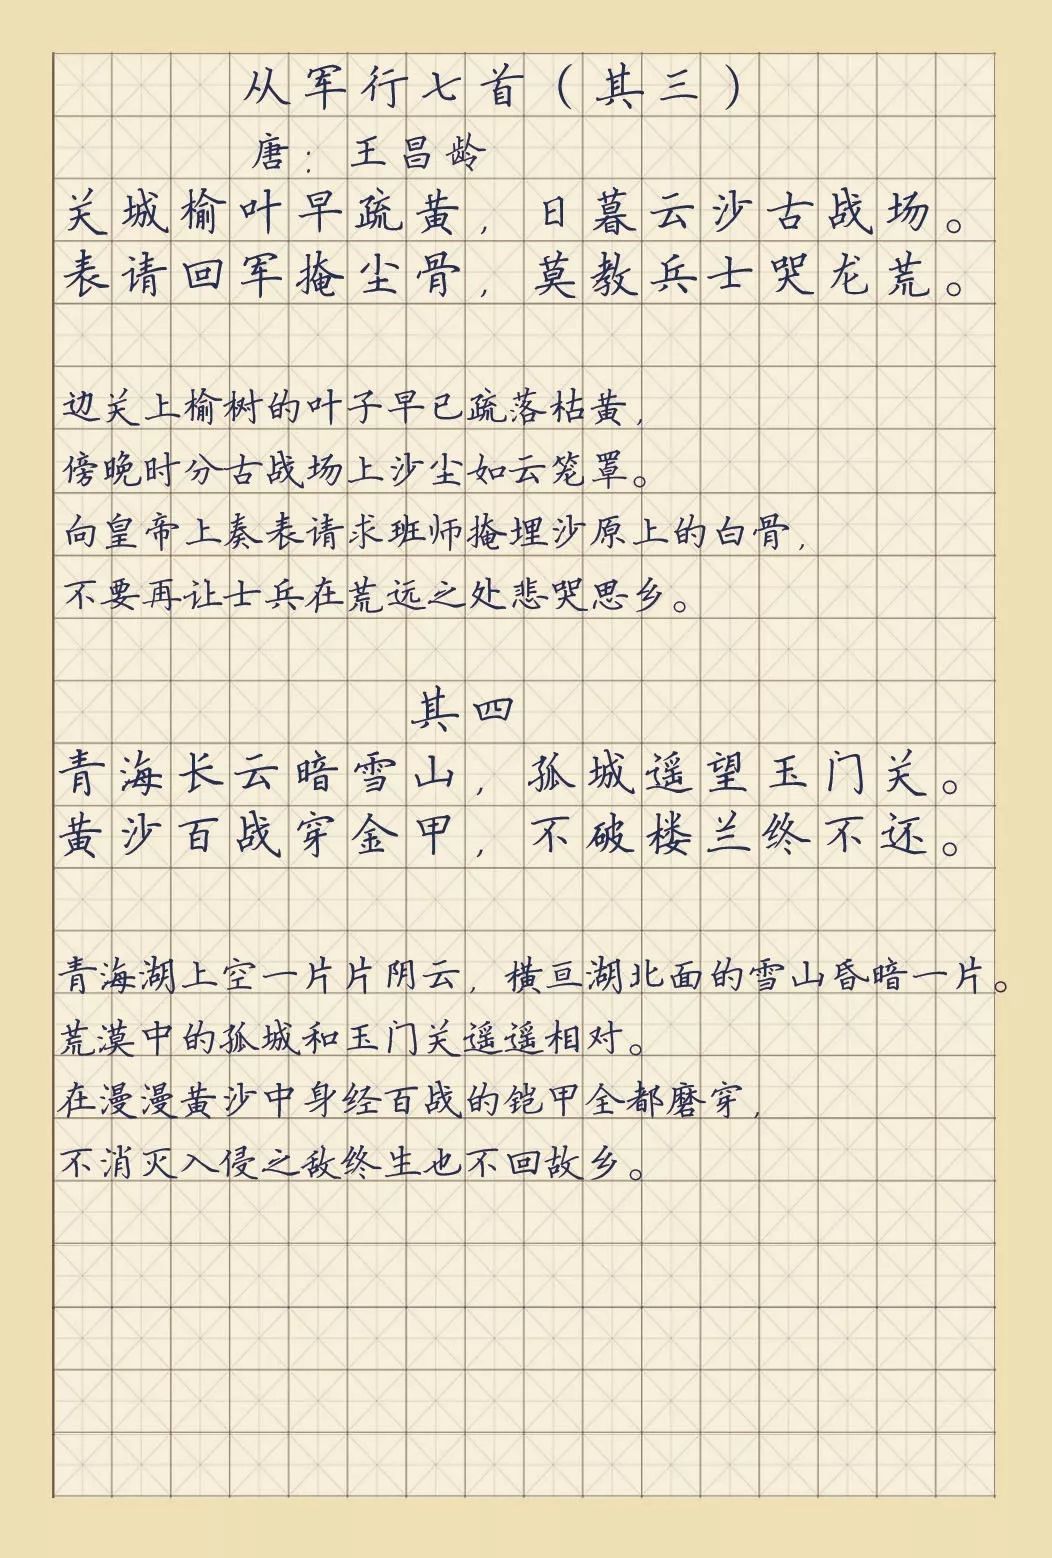 从军行七首（其三）
唐：王昌龄
关城榆叶早疏黄，日暮云沙古战场。
表请回军掩尘骨，莫教兵士哭龙荒。
边关上榆树的叶子早已疏落枯黄，
傍晚时分古战场上沙尘如云笼罩。
向皇帝上奏表请求班师掩埋沙原上的白骨，
不要再让士兵在荒远之处悲哭思乡。
其四
青海长云暗雪山，孤城遥望玉门关。
黄沙百战穿金甲，不破楼兰终不还。
青海湖上空一片片阴云，横亘湖北面的雪山昏暗一片。
荒漠中的孤城和玉门关遥遥相对。
在漫漫黄沙中身经百战的铠甲全都磨穿，
不消灭入侵之敌终生也不回故乡。